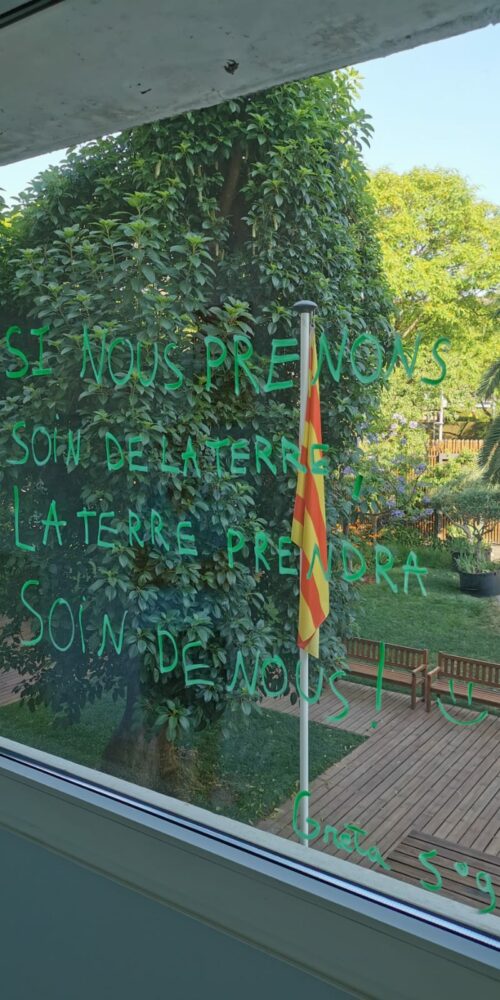 SI NOUS PRENONS
SOIN DE LA TERRE,
LA TERRE PRENDRA
SOIN DE NOUS! :)
Greta 5°g